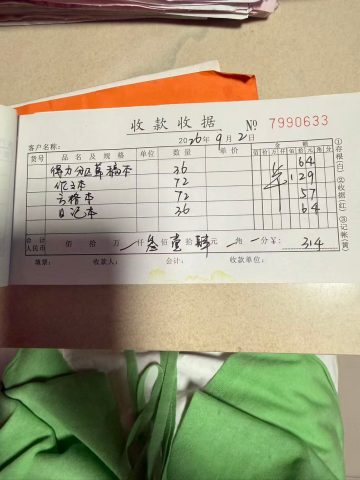 收款收据 № 7990633
2026年9月2日
客户名称：
货号 品名及规格 单位 数量 单价 金额
佰拾万仟佰拾元角分
得力分页草稿本 36 64
作文本 72 129
方格本 72 57
日记本 36 64
合计人民币 佰 拾 万 仟 叁佰壹拾肆元 角 分 ¥： 314
填票： 收款人： 会计： 收款单位：
①存根(白) ②收据(红) ③记帐(黄)